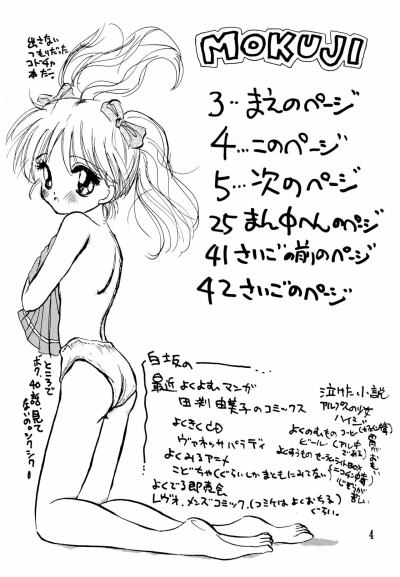 出さない
つもりだった
コドチャ
本だー
MOKUJI
3‥まえのページ
4…このページ
5…次のページ
25まん中へんのページ
41さいごの前のページ
42さいごのページ
ところで
ボク、40話、見て
ないの。シクシクー
白坂の
最近よくよむマンガ
田刈由美子のコミックス
よくきくCD
ヴァネッサパラディ
よくみるアニメ
こどちゃ(ぐらいしかまともにみてない)
よくでる即売会
レヴォ、メンズコミック、(コミケはよくおちる)
ぐらい。
泣けた小説
アルプスの少女
ハイジ
よくのむもの コーヒー
ビール(アル中
である)
4